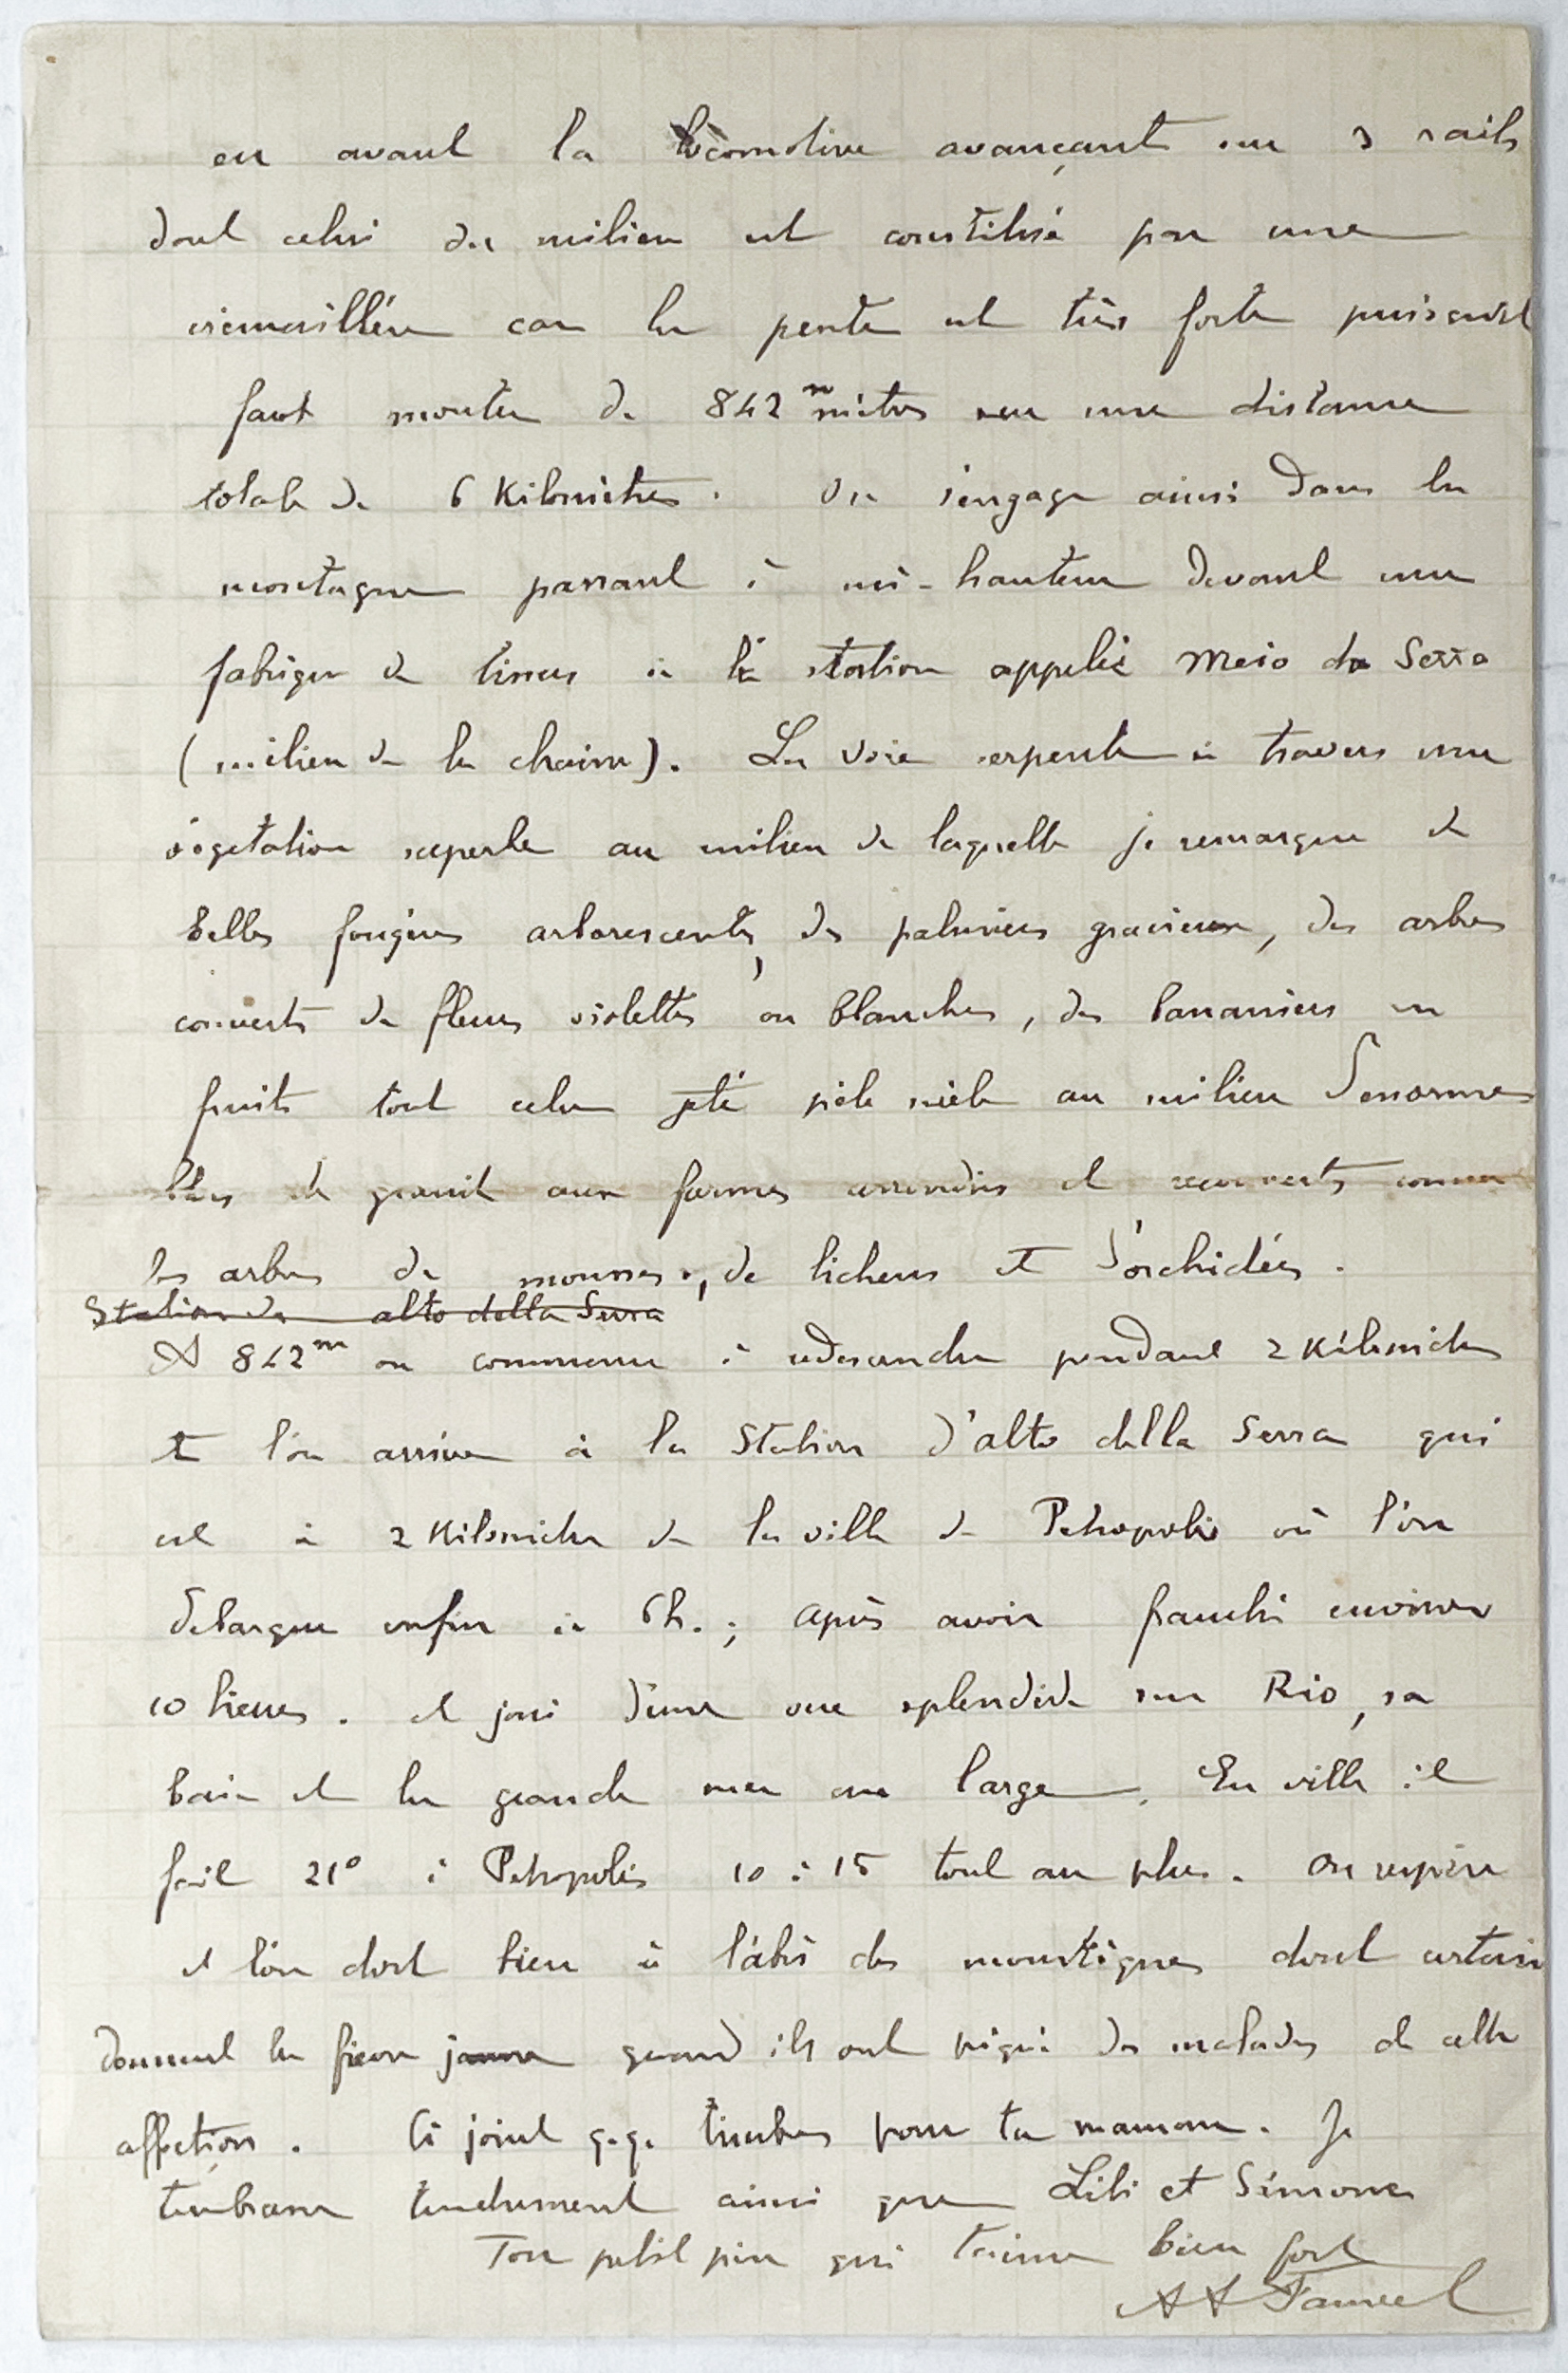 en avant la locomotive avançant sur 3 rails
dont celui du milieu est constitué par une
crémaillère car la pente est très forte puisqu'il
faut monter de 842 mètres sur une distance
totale de 6 Kilomètres. On s'engage ainsi dans la
montagne passant à mi-hauteur devant une
fabrique de tissus à la station appelée Meio da Serra
(milieu de la chaine). La voie serpente à travers une
végétation superbe au milieu de laquelle je remarque de
belles fougères arborescentes, des palmiers gracieux, des arbres
couverts de fleurs violettes ou blanches, des bananiers en
fruits tout cela jeté pèle mèle au milieu d'enormes
blocs de granit aux formes arrondies et recouverts comme
les arbres de mousses, de lichens et d'orchidées.
Station de alto della Serra
A 842m on commence à redescendre pendant 2 Kilomètres
et l'on arrive à la Station d'alto della Serra qui
est à 2 Kilomètres de la ville de Petropolis où l'on
debarque enfin à 6h.; après avoir franchi environ
10 lieues. et joui d'une vue splendide sur Rio, sa
baie et la grande mer au large. En ville il
fait 21° à Petropolis 10 à 15 tout au plus. On respire
et l'on dort bien à l'abri des moustiques dont certains
donnent la fièvre jaune quand ils ont piqué des malades de cette
affection. Ci joint q.q. timbres pour ta maman. Je
t'embrasse tendrement ainsi que Lili et Simone
Ton petit père qui t'aime bien fort